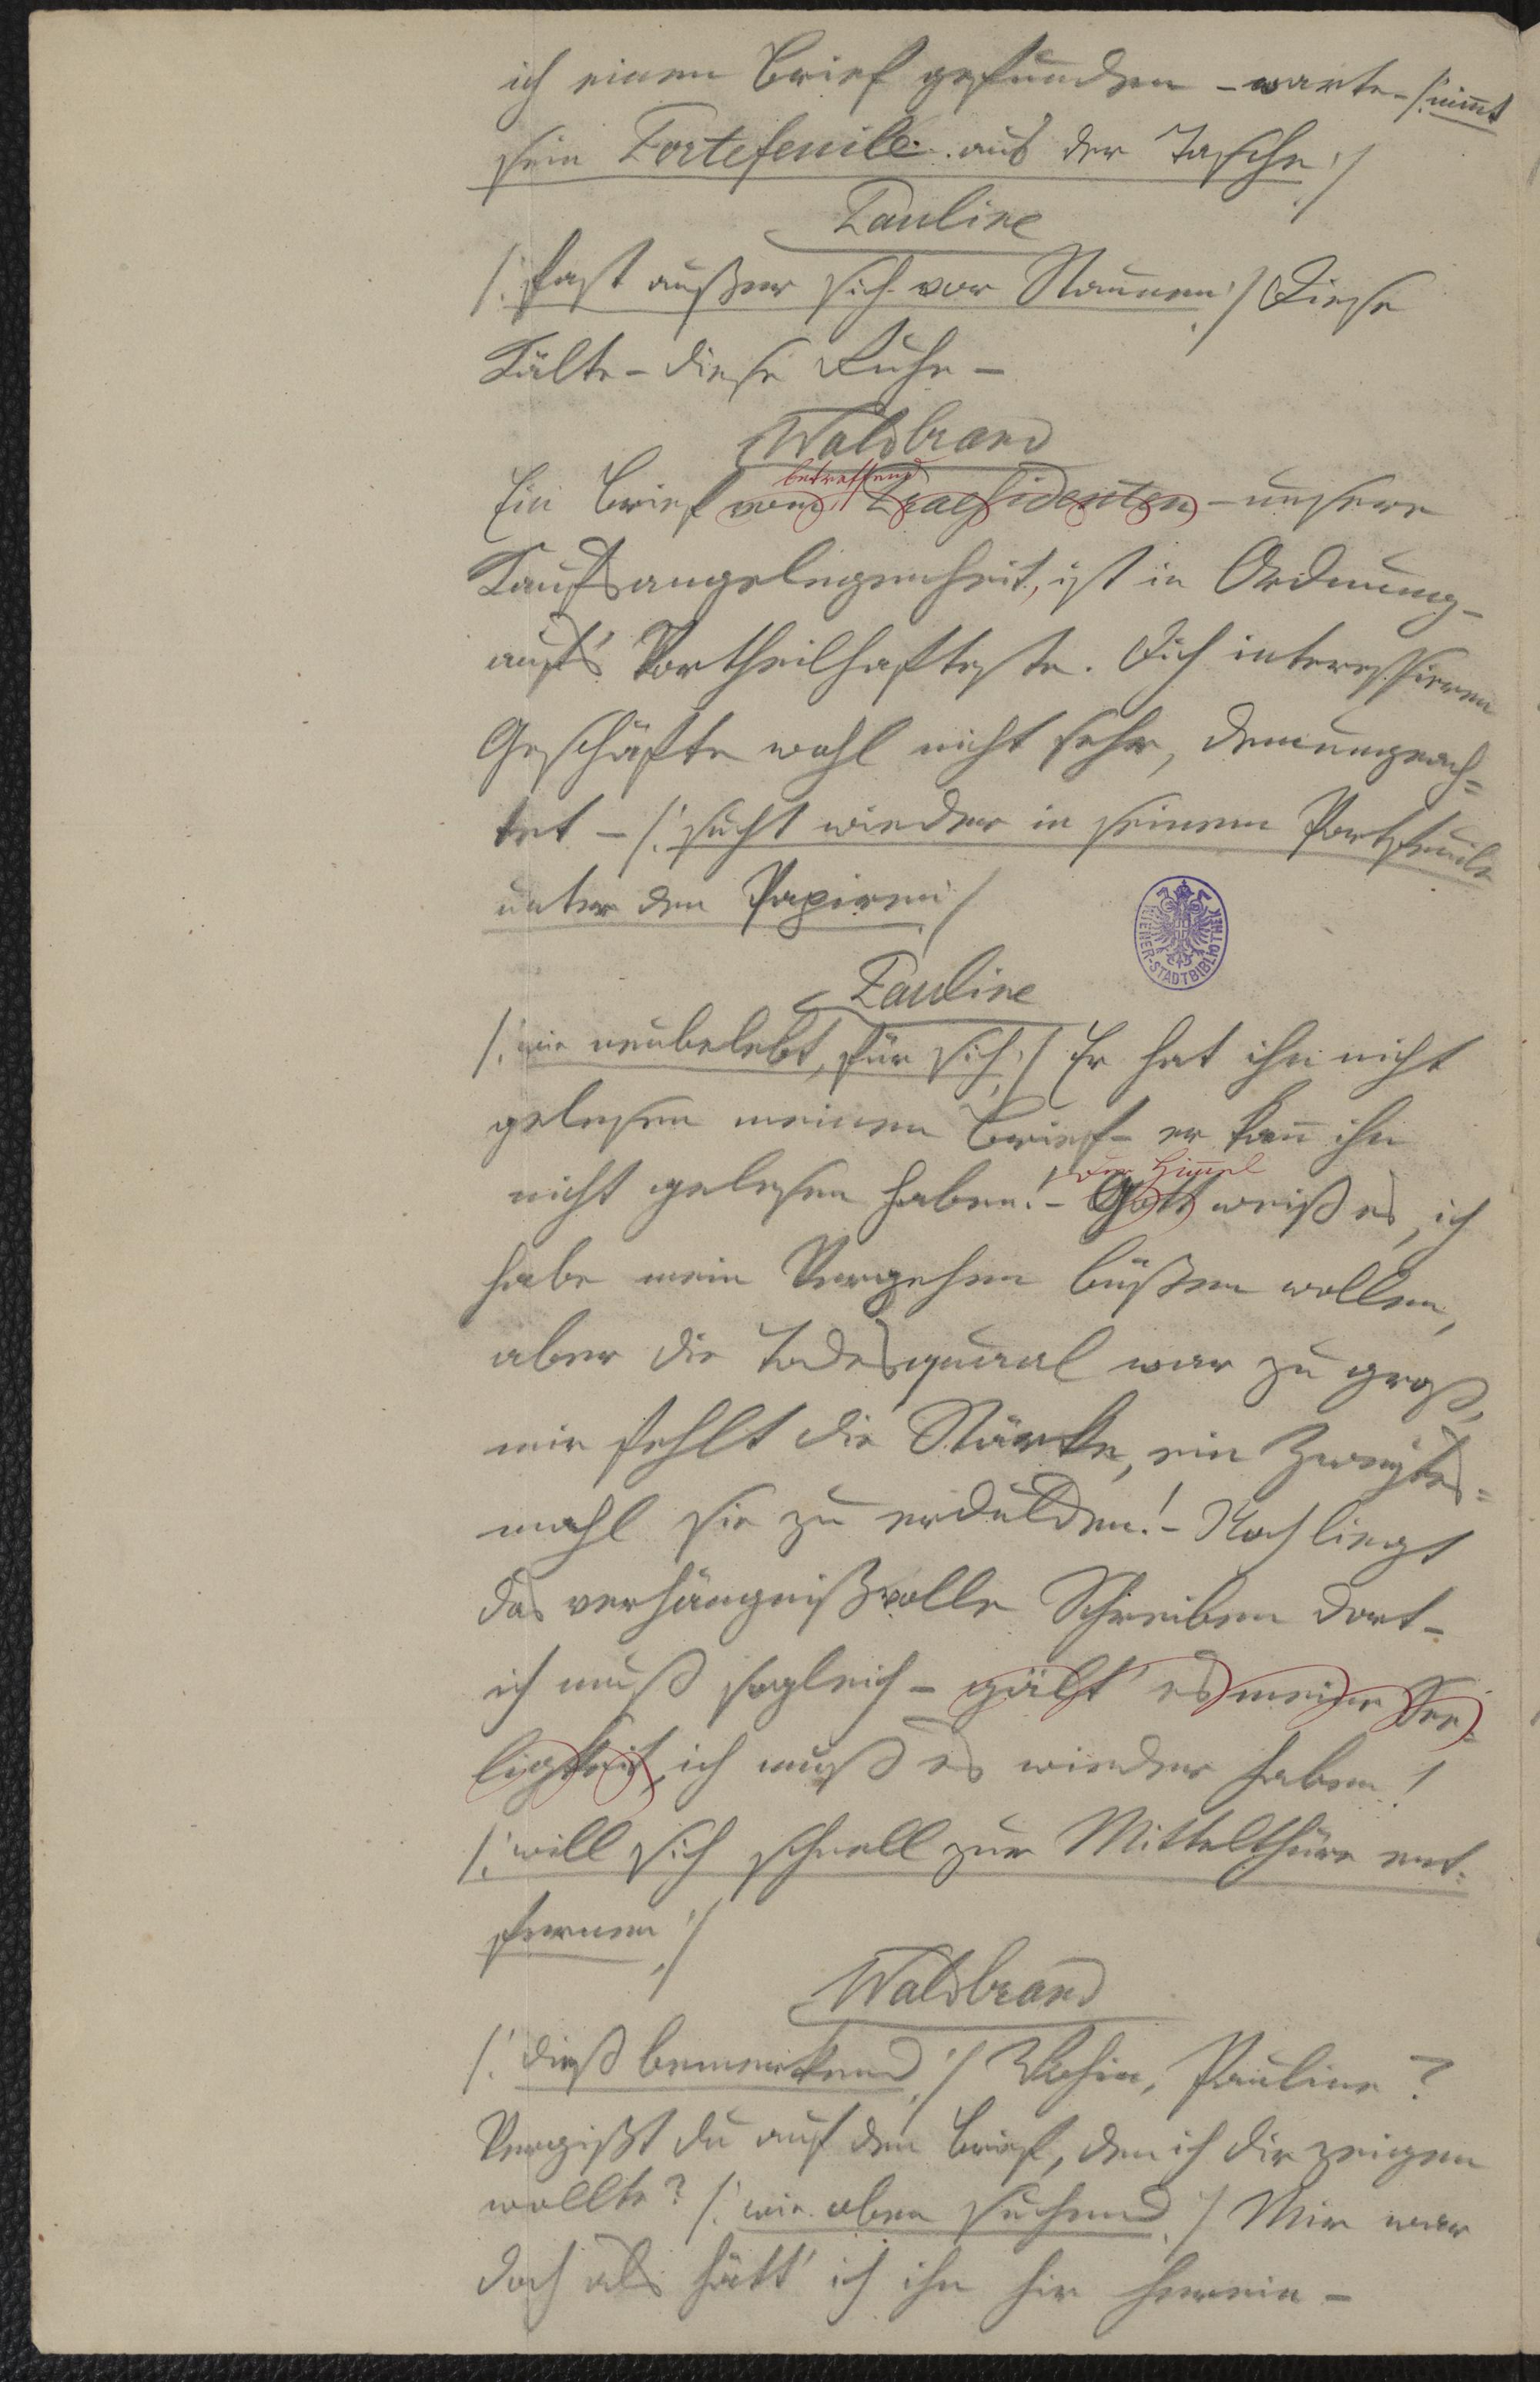 ich einen Brief gefunden – warte – /: nim̄t
sein Portefeuile aus der Tasche :/
Pauline
/: fast außer sich vor Staunen :/ Diese
Kälte – diese Ruhe –
Waldbrand
betreffend
Ein Brief vom Praesidenten – unsere
Kaufsangelegenheit, ist in Ordnung –
auf's Vortheilhafteste. Dich interessieren
Geschäfte wohl nicht sehr, demungeach=
tet – /: sucht wieder in seinem Portefeuile
unter den Papieren :/
WIENER-STADTBIBLIOTHEK
Pauline
/: wie neubelebt, für sich :/ Er hat ihn nicht
gelesen meinen Brief – er kan̄ ihn
der Him̄el
nicht gelesen haben! – Gott weiß es, ich
habe mein Vergehen büßen wollen,
aber die Todesquaal war zu groß,
mir fehlt die Stärke, ein Zweytes=
mahl sie zu erdulden! – Noch liegt
das verhängnißvolle Schreiben dort –
ich muß sogleich – gält' es meine See=
ligkeit, ich muß es wieder haben!
/: will sich schnell zur Mittelthüre ent=
fernen :/
Waldbrand
/: dieß bemerkend :/ Wohin, Pauline?
Vergißt du auf den Brief, den ich dir zeigen
wollte? /: wie oben suchend :/ Mir war
doch als hätt' ich ihn hier herein –